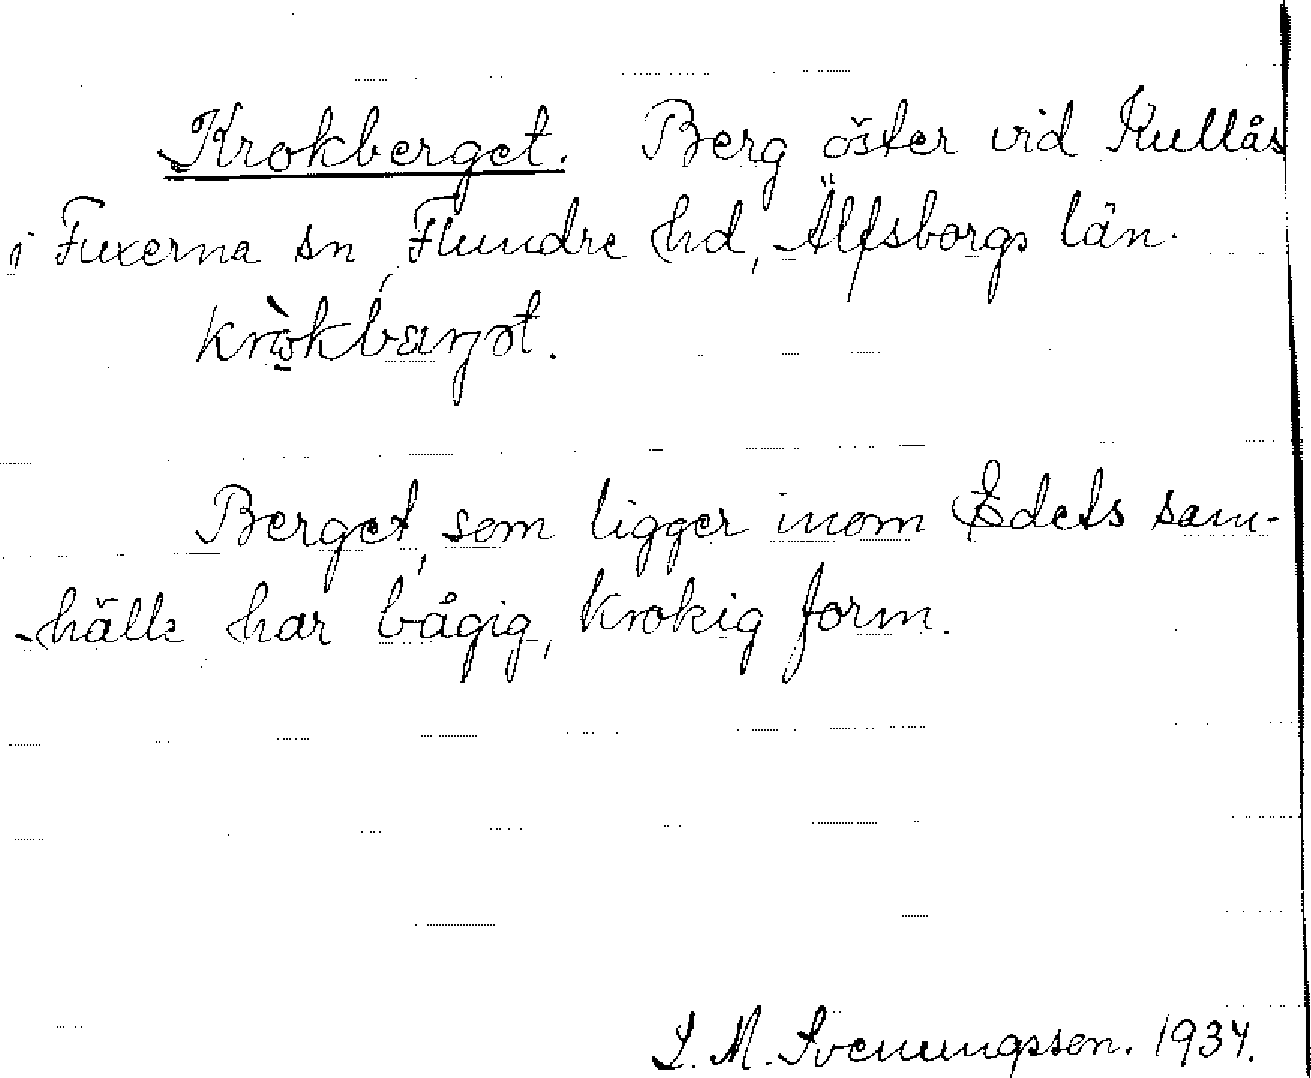 Krokberget. Berg öster vid Kullås
i Fuxerna sn, Flundre hd, Älfsborgs län.
krò̠kbærjət.
Berget, som ligger inom Edets sam-
hälle har bågig, krokig form.
S. M. Svenungsson. 1934.